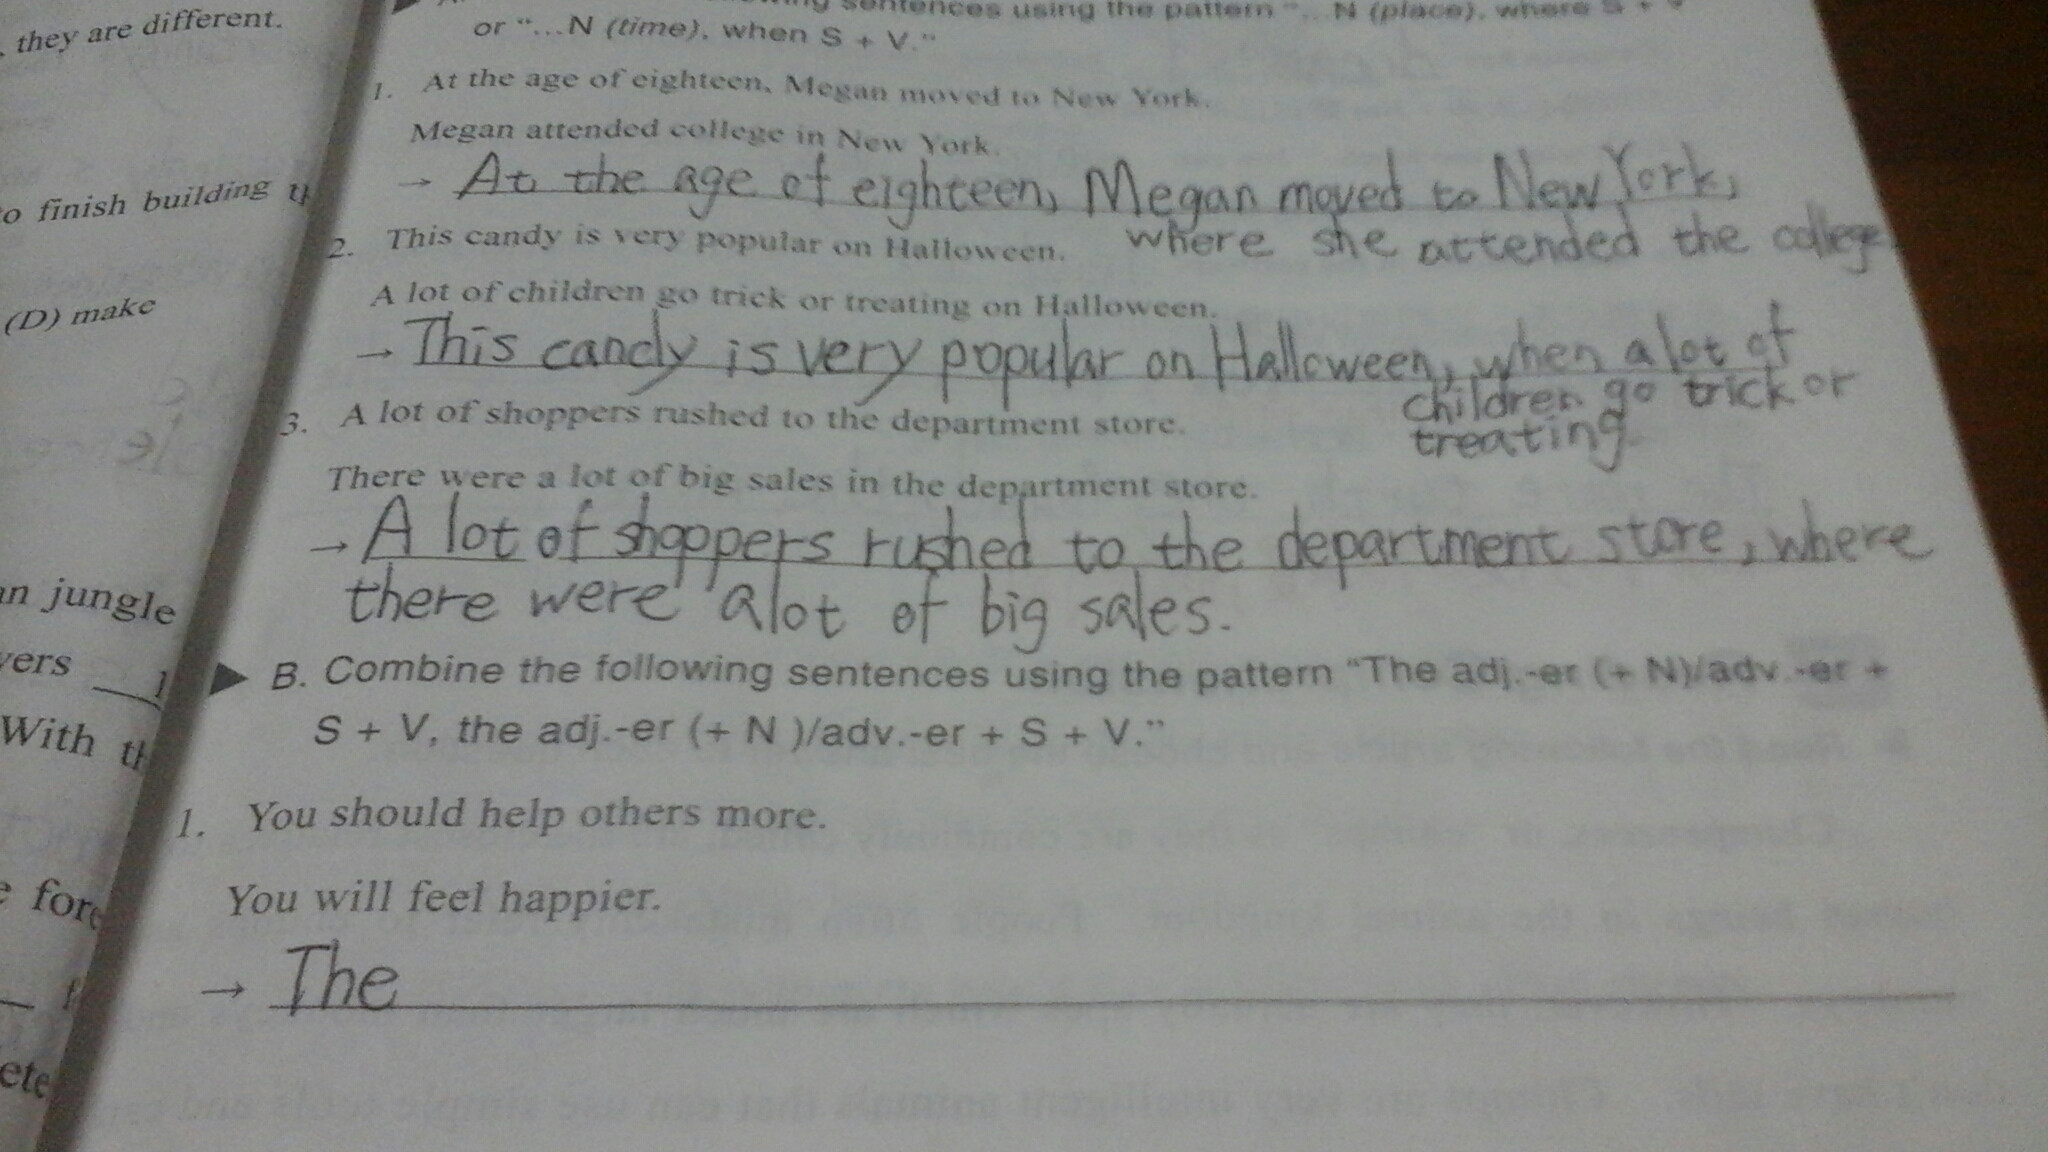 they are different.
sentences using the pattern "... N (place), where S + V
or "...N (time), when S + V."
1. At the age of eighteen, Megan moved to New York.
Megan attended college in New York.
→ At the age of eighteen, Megan moved to New York,
where she attended the college
o finish building
2. This candy is very popular on Halloween.
A lot of children go trick or treating on Halloween.
(D) make
→ This candy is very popular on Halloween, when a lot of
children go trick or
treating.
3. A lot of shoppers rushed to the department store.
There were a lot of big sales in the department store.
→ A lot of shoppers rushed to the department store, where
there were a lot of big sales.
an jungle
vers
B. Combine the following sentences using the pattern "The adj.-er (+ N)/adv.-er +
S + V, the adj.-er (+ N )/adv.-er + S + V."
With th
1. You should help others more.
e fore
You will feel happier.
→ The
ete